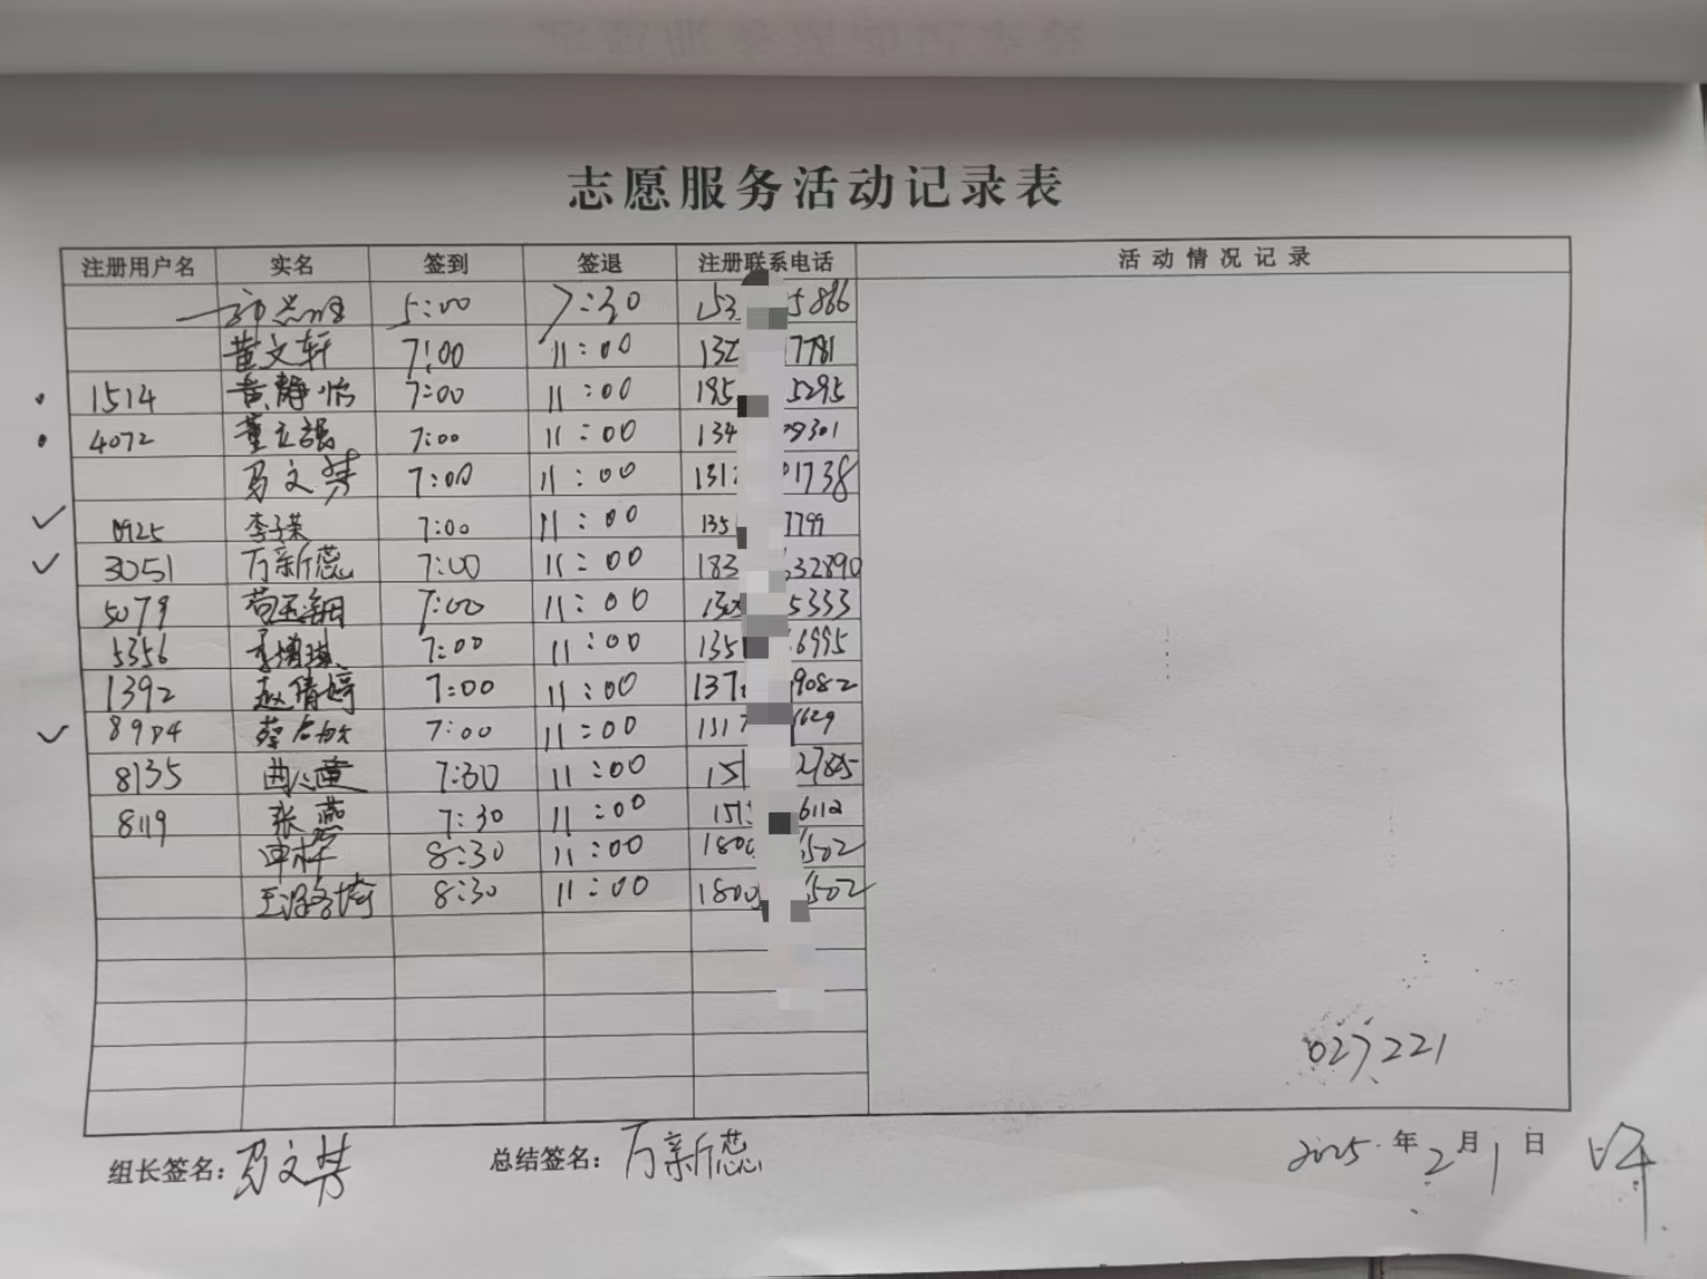 志愿服务活动记录表
注册用户名 实名 签到 签退 注册联系电话 活动情况记录
5:00 7:30 153 5866
黄文轩 7:00 11:00 132 7781
1514 黄静怡 7:00 11:00 185 5295
4072 董立强 7:00 11:00 134 9301
马文梦 7:00 11:00 131 1738
0925 李子荣 7:00 11:00 135 7799
3051 万新蕊 7:00 11:00 183 32890
5079 7:00 11:00 130 5333
5356 7:00 11:00 135 6995
1392 赵倩婷 7:00 11:00 137 9082
8904 7:00 11:00 131 629
8135 7:30 11:00 151 2785
8119 张燕 7:30 11:00 151 6112
8:30 11:00 180 502
8:30 11:00 180 502
027221
组长签名: 马文梦 总结签名: 万新蕊 2025.年2月1日